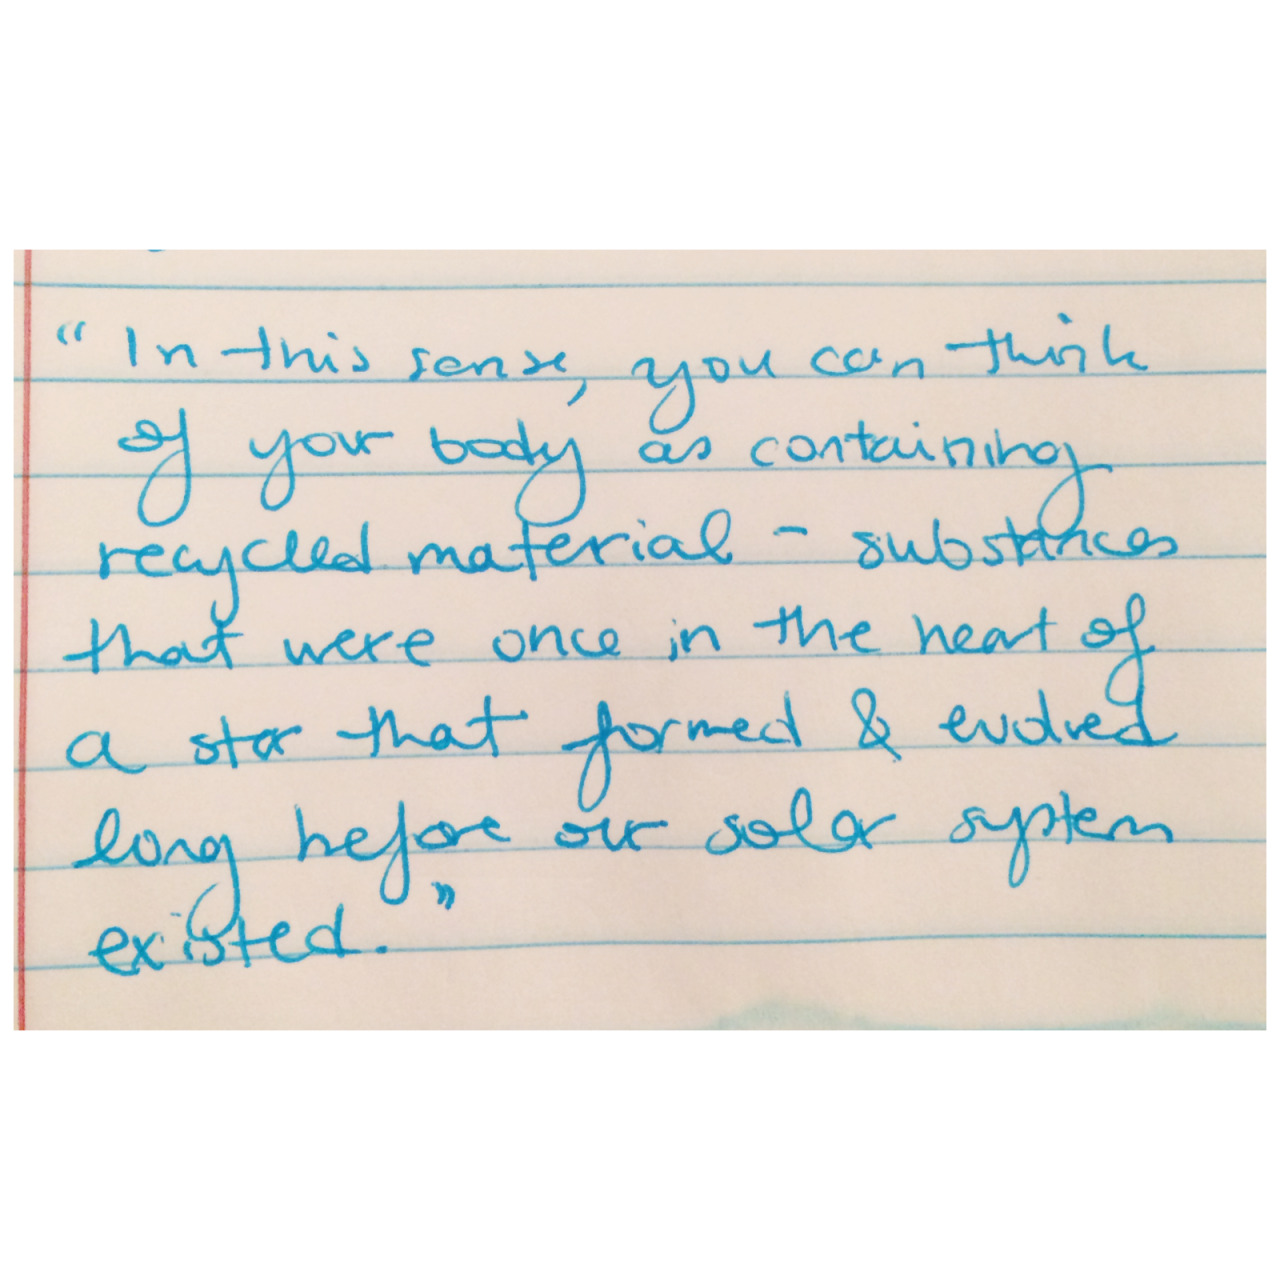 “In this sense, you can think
of your body as containing
recycled material - substances
that were once in the heart of
a star that formed & evolved
long before our solar system
existed.”